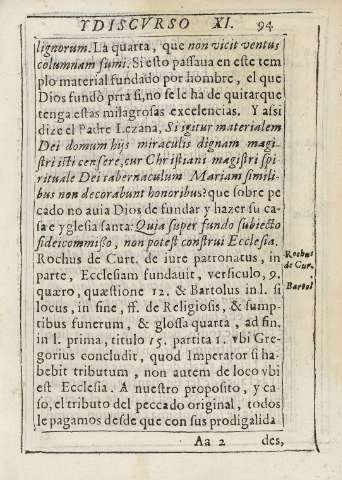 YDISCVRSO XI. 94
lignorum. La quarta, que non vicit ventus
columnam fumi. Si esto passaua en este tem
plo material fundado por hombre, el que
Dios fundò prra si, no se le ha de quitar que
tenga estas milagrosas excelencias. Y assi
dize el Padre Lezana, Si igitur materialem
Dei domum hijs miraculis dignam magi
stri isti censere, cur Christiani magistri spi
rituale Dei tabernaculum Mariam simili
bus non decorabunt honoribus? que sobre pe
cado no auia Dios de fundar y hazer su ca-
sa e yglesia santa: Quia super fundo subiecto
fideicommisso, non potest construi Ecclesia.
Rochus de Curt. de iure patronatus, in
parte, Ecclesiam fundauit, versiculo, 9.
quæro, quæstione 12. & Bartolus in l. si
locus, in sine, ff. de Religiosis, & sump-
tibus funerum, & glossa quarta, ad fin.
in l. prima, titulo 15. partita 1. vbi Gre-
gorius concludit, quod Imperator si ha-
bebit tributum, non autem de loco vbi
est Ecclesia. A nuestro proposito, y ca-
so, el tributo del peccado original, todos
le pagamos desde que con sus prodigalida
Aa 2 des,
Rochus
de Cur.
Bartol